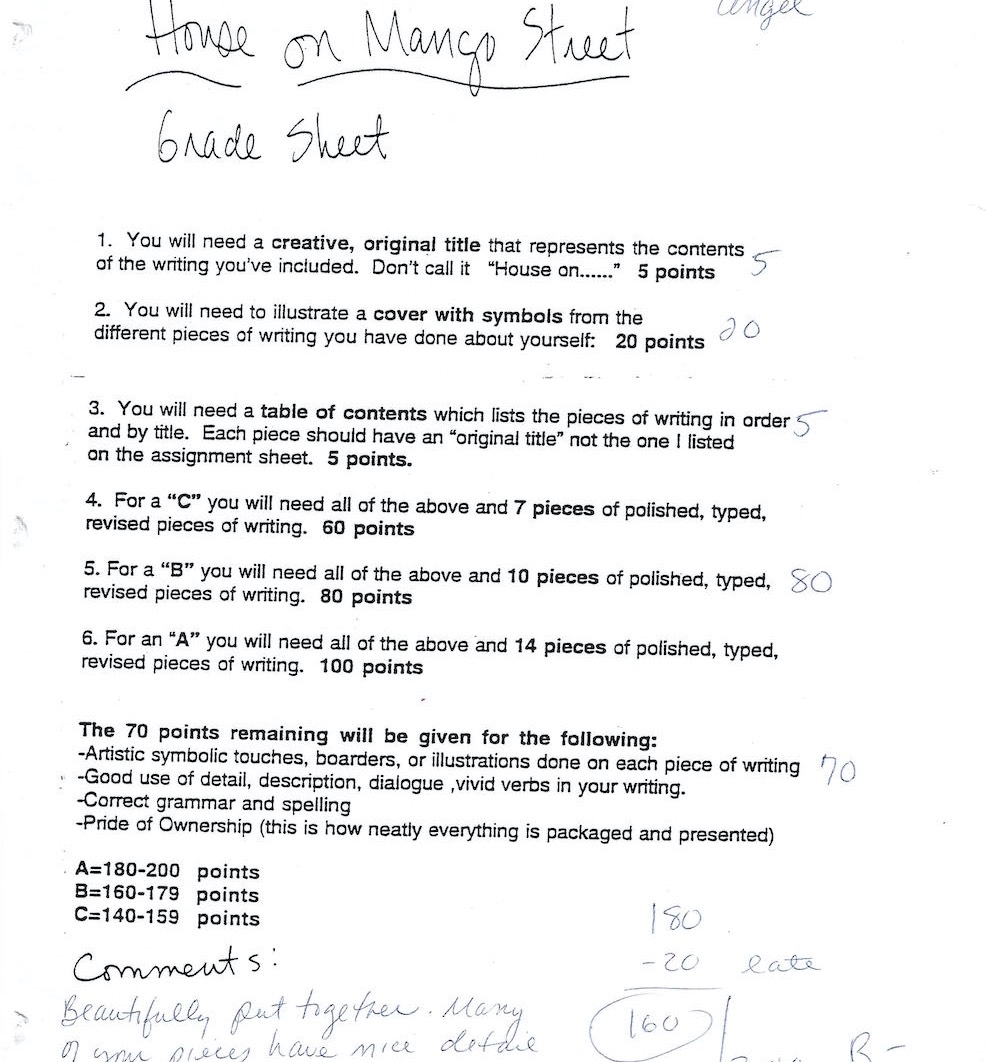 angel
House on Mango Street
Grade Sheet
1. You will need a creative, original title that represents the contents 5
of the writing you've included. Don't call it "House on......" 5 points
2. You will need to illustrate a cover with symbols from the
different pieces of writing you have done about yourself: 20 points 20
3. You will need a table of contents which lists the pieces of writing in order 5
and by title. Each piece should have an "original title" not the one I listed
on the assignment sheet. 5 points.
4. For a "C" you will need all of the above and 7 pieces of polished, typed,
revised pieces of writing. 60 points
5. For a "B" you will need all of the above and 10 pieces of polished, typed, 80
revised pieces of writing. 80 points
6. For an "A" you will need all of the above and 14 pieces of polished, typed,
revised pieces of writing. 100 points
The 70 points remaining will be given for the following:
-Artistic symbolic touches, boarders, or illustrations done on each piece of writing 70
-Good use of detail, description, dialogue ,vivid verbs in your writing.
-Correct grammar and spelling
-Pride of Ownership (this is how neatly everything is packaged and presented)
A=180-200 points
B=160-179 points
C=140-159 points
180
-20 late
160
B-
Comments:
Beautifully put together. Many
of your pieces have nice detail